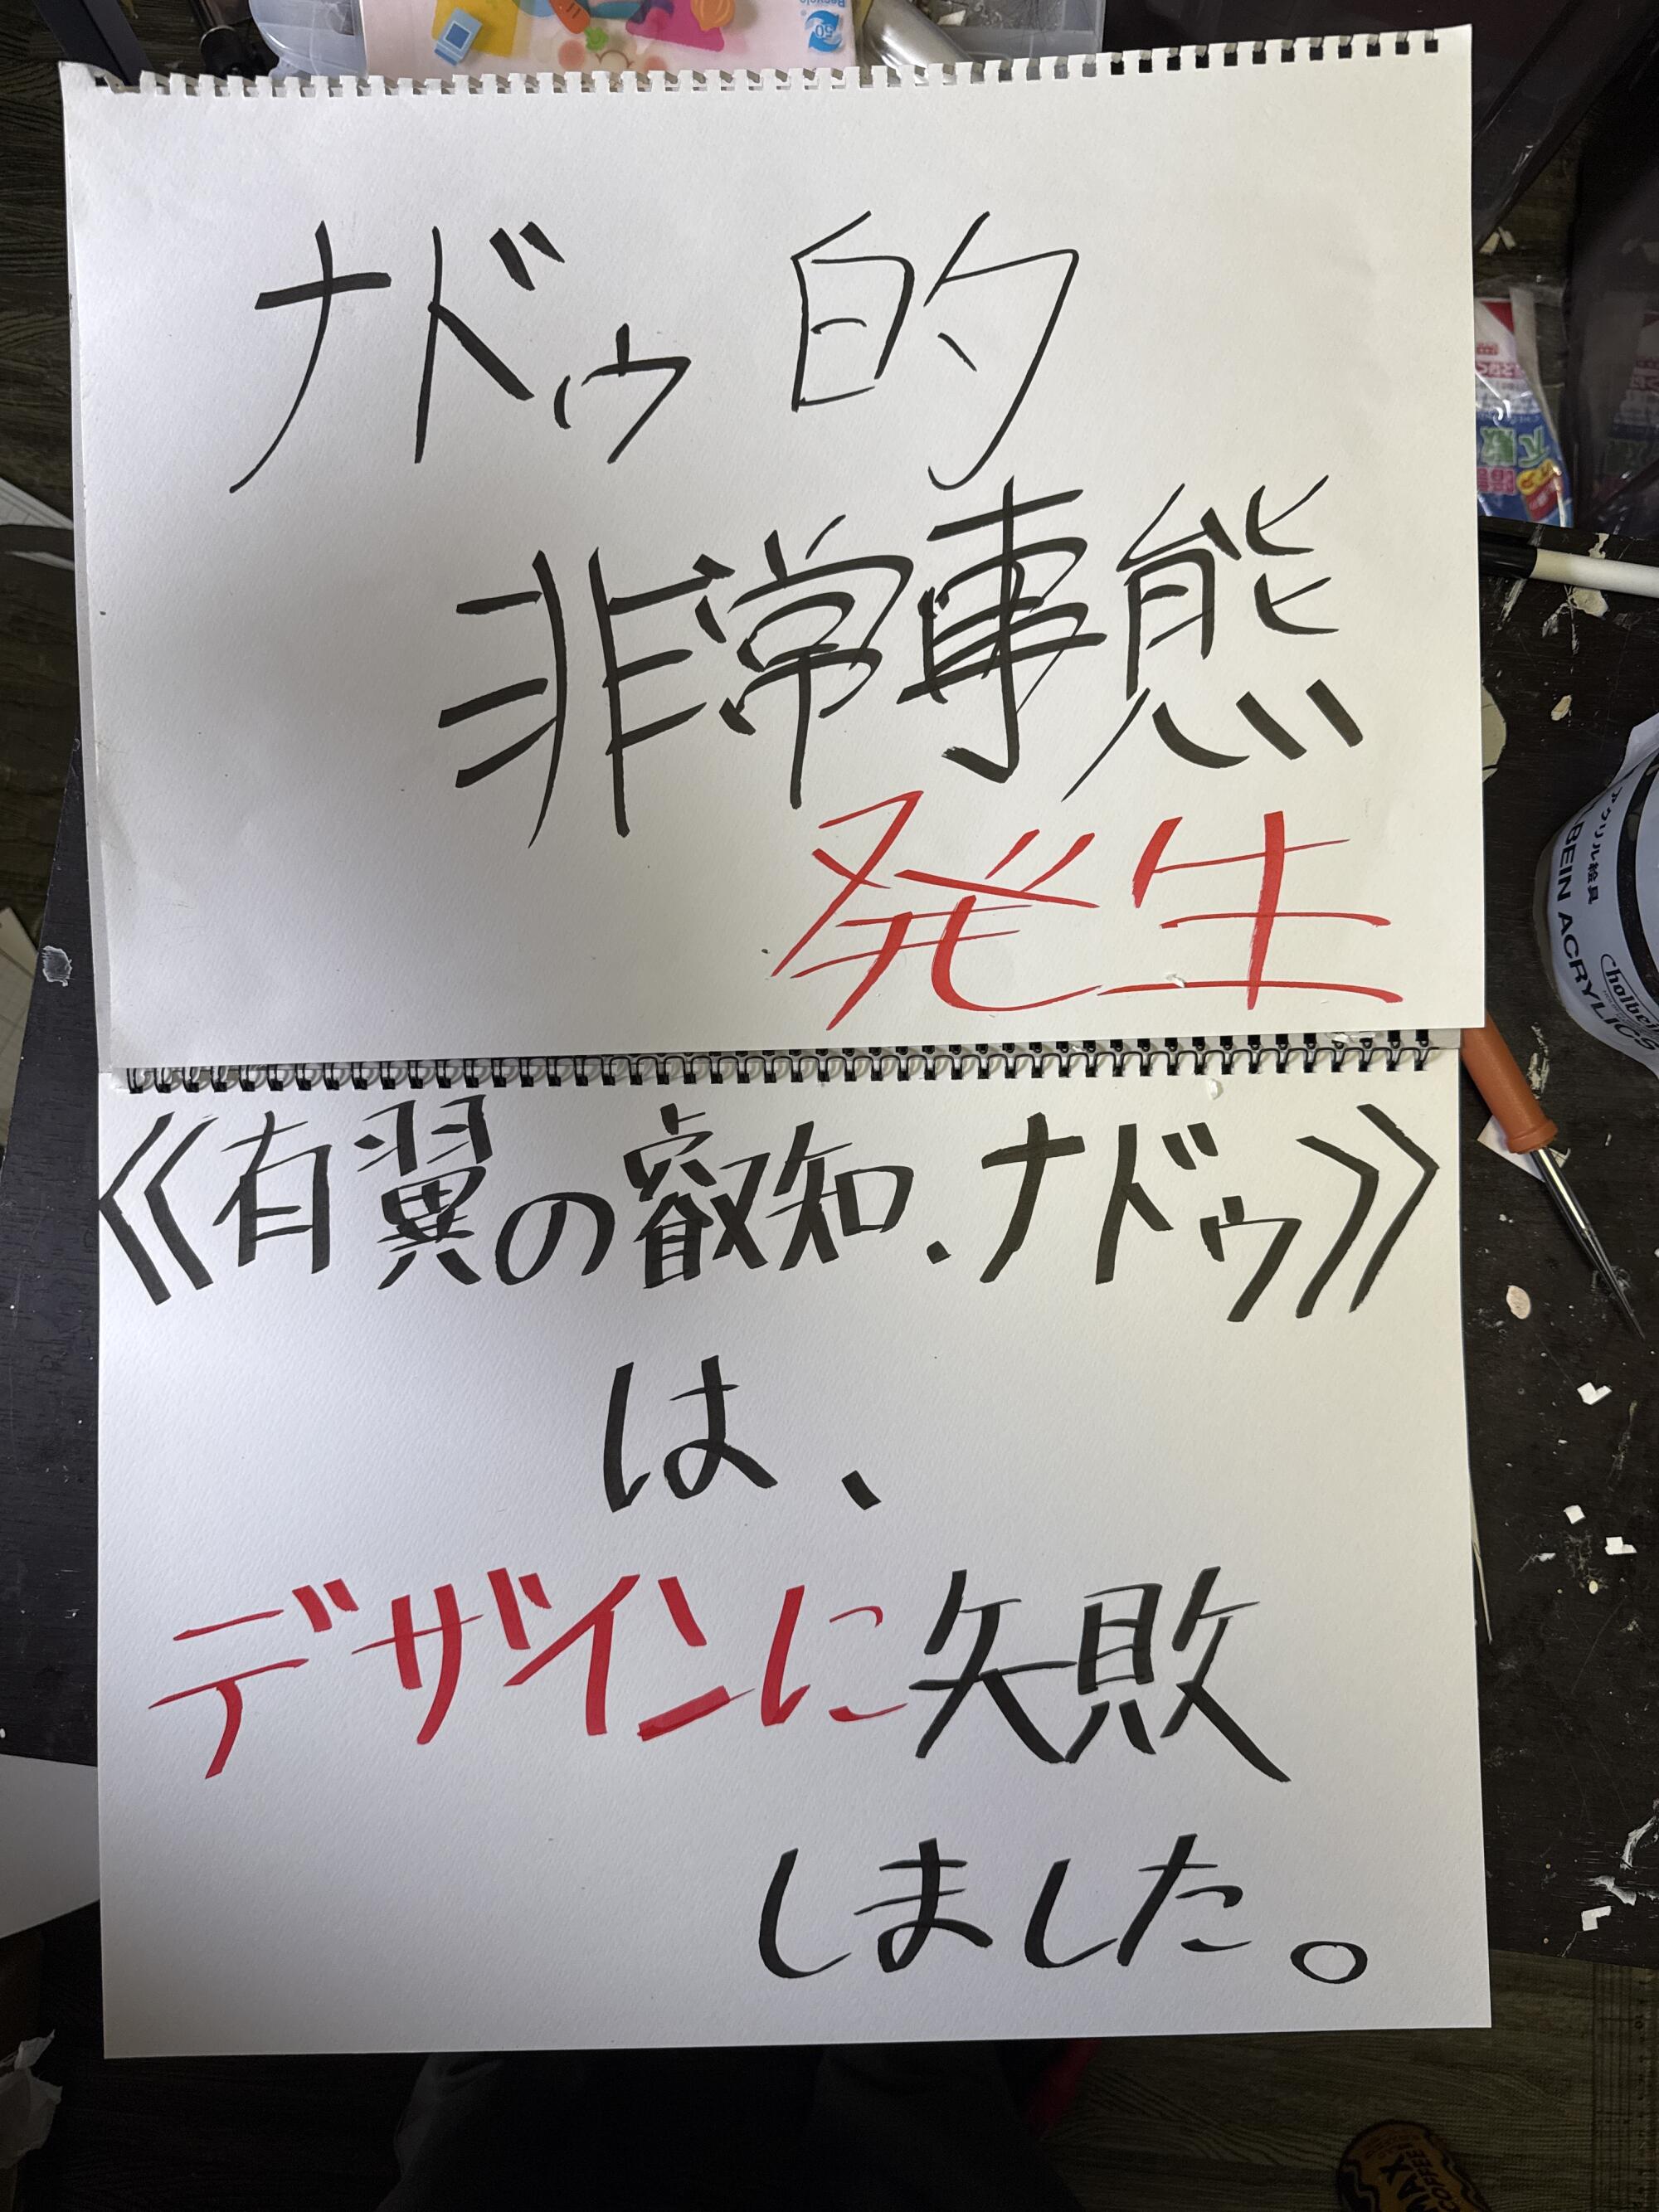 ナドゥ的
非常事態
発生
《有翼の叡知、ナドゥ》
は、
デザインに失敗
しました。
アクリル絵具
BEIN ACRYLICS
Holbein
MAX
COFFEE